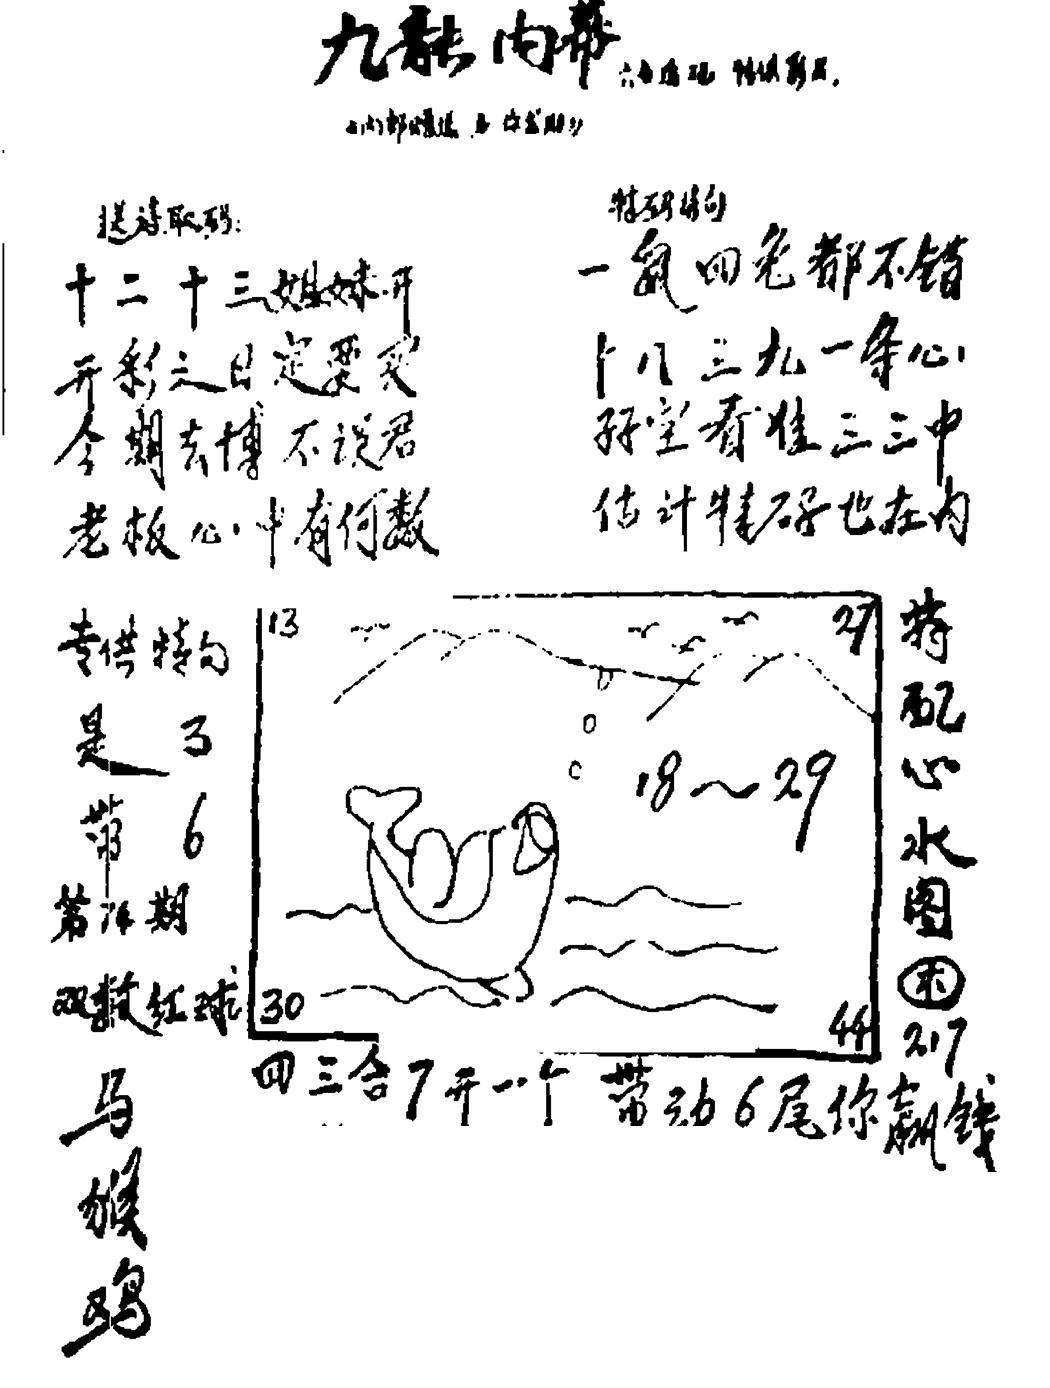 九龙内幕
送诗取码:
十二十三姐妹开
开彩之日定要买
今期去博不误君
老板心中有何数
特码诗句
一氣四兔都不错
十八三九一条心
孖宝看准三三中
估计特码也在内
专供特句
是 3
带 6
第 74 期
双数红球
马
猴
鸡
13
27
18～29
30
44
特
配
心
水
图
217
四三合7开一个 带动6尾你赢钱